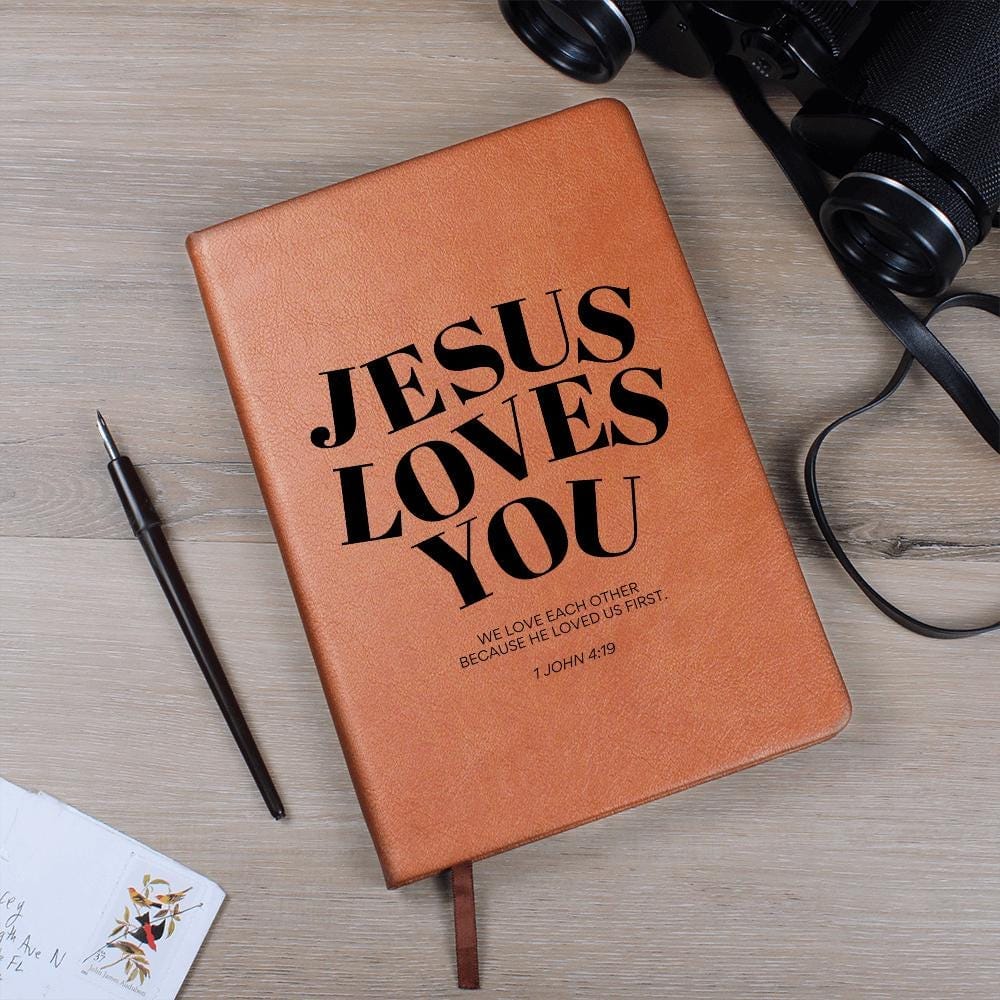 JESUS
LOVES
YOU
WE LOVE EACH OTHER
BECAUSE HE LOVED US FIRST.
1 JOHN 4:19
Ave N
FL
37
John James Audubon